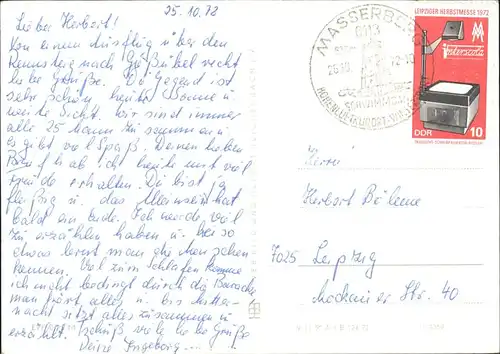 25.10.72
Lieber Herbert!
Von einem Ausflug über den
Rennsteig nach Gießübel recht
liebe Grüße. Die Gegend ist
sehr schön, heute Sonne u.
weite Sicht. Wir sind immer
alle 25 Mann zusammen u.
es gibt viel Spaß. Deinen lieben
Brief hab ich heute mit viel
Freude erhalten. Du bist ja
fleißig u. das
bald am Ende. Ich werde viel
zu erzählen haben u. bei so
etwas lernt man die Menschen
kennen. Viel zum Schlafen komme
ich nicht bedingt durch die Baracke
man hört alles u. bis Mitter-
nacht sitzt alles zusammen u.
erzählt. Tschüß viele liebe Grüße
Deine Ingeborg
MASSERBERG
6113
25.10.72
HÖHENLUFTKURORT
LEIPZIGER HERBSTMESSE 1972
MM
Interscola
DDR 10
Herrn
Herbert Böleme
7025 Leipzig
Mockauer Str. 40